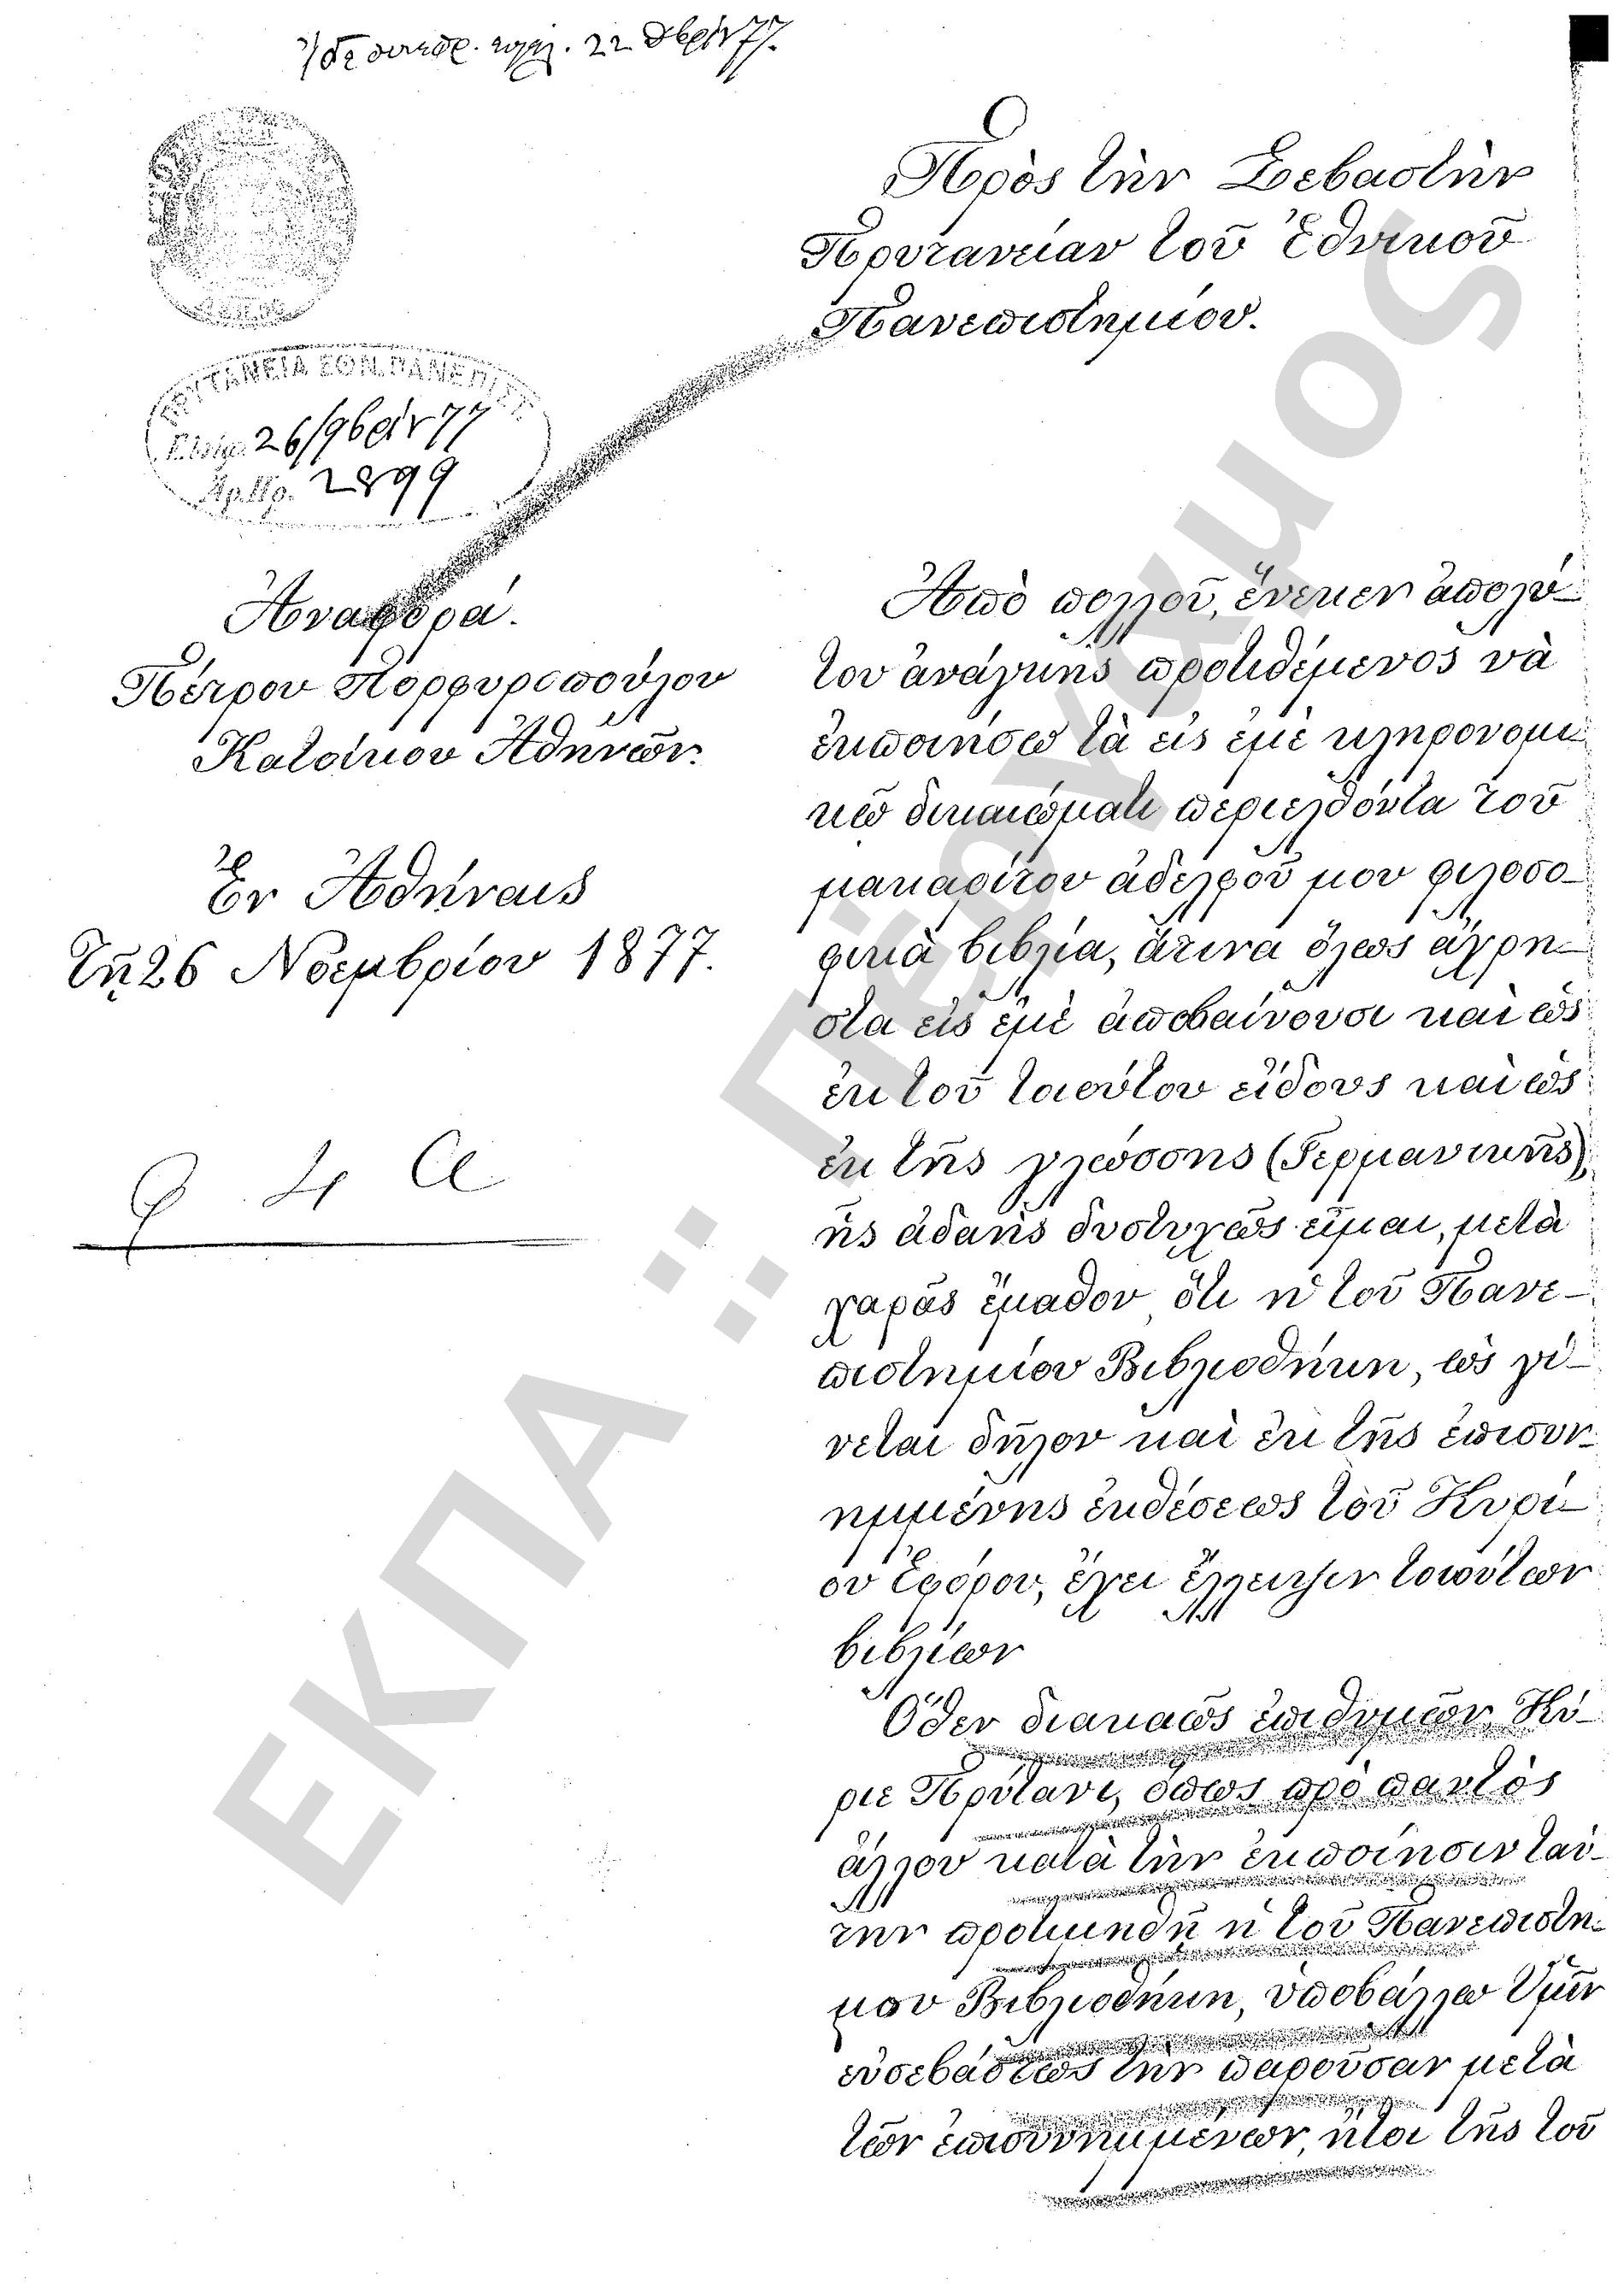 22 δβρίν 77.
Πρὸς τὴν Σεβαστὴν
Πρυτανείαν τοῦ Ἐθνικοῦ
Πανεπιστημίου.
ΠΡΥΤΑΝΕΙΑ ΕΘΝ. ΠΑΝΕΠΙΣΤ.
26/9βρίν 77
Ἀρ. Πρ. 2899
Ἀναφορά.
Πέτρου Πορφυροπούλου
Κατοίκου Ἀθηνῶν.
Ἐν Ἀθήναις
Τῇ 26 Νοεμβρίου 1877.
Ἀπὸ πολλοῦ, ἕνεκεν ἀπολύ-
του ἀνάγκης προτιθέμενος νὰ
ἐκποιήσω τὰ εἰς ἐμὲ κληρονομι
κῷ δικαιώματι περιελθόντα τοῦ
μακαρίτου ἀδελφοῦ μου φιλοσο-
φικὰ βιβλία, ἅτινα ὅλως ἄχρη-
στα εἰς ἐμὲ ἀποβαίνουσι καὶ ὡς
ἐκ τοῦ τοιούτου εἴδους καὶ ὡς
ἐκ τῆς γλώσσης (Γερμανικῆς),
ἧς ἀδαὴς δυστυχῶς εἶμαι, μετὰ
χαρᾶς ἔμαθον ὅτι ἡ τοῦ Πανε-
πιστημίου Βιβλιοθήκη, ὡς γί-
νεται δῆλον καὶ ἐκ τῆς ἐπισυν-
ημμένης ἐκθέσεως τοῦ Κυρί-
ου Ἐφόρου, ἔχει ἔλλειψιν τοιούτων
βιβλίων
Ὅθεν διακαῶς ἐπιθυμῶν, Κύ-
ριε Πρύτανι, ὅπως πρὸ παντὸς
ἄλλου κατὰ τὴν ἐκποίησιν ταύ-
την προτιμηθῇ ἡ τοῦ Πανεπιστη-
μίου Βιβλιοθήκη, ὑποβάλλω Ὑμῖν
εὐσεβάστως τὴν παροῦσαν μετὰ
τῶν ἐπισυνημμένων, ἤτοι τῆς τοῦ
ΕΚΠΑ :: Πέργαμος